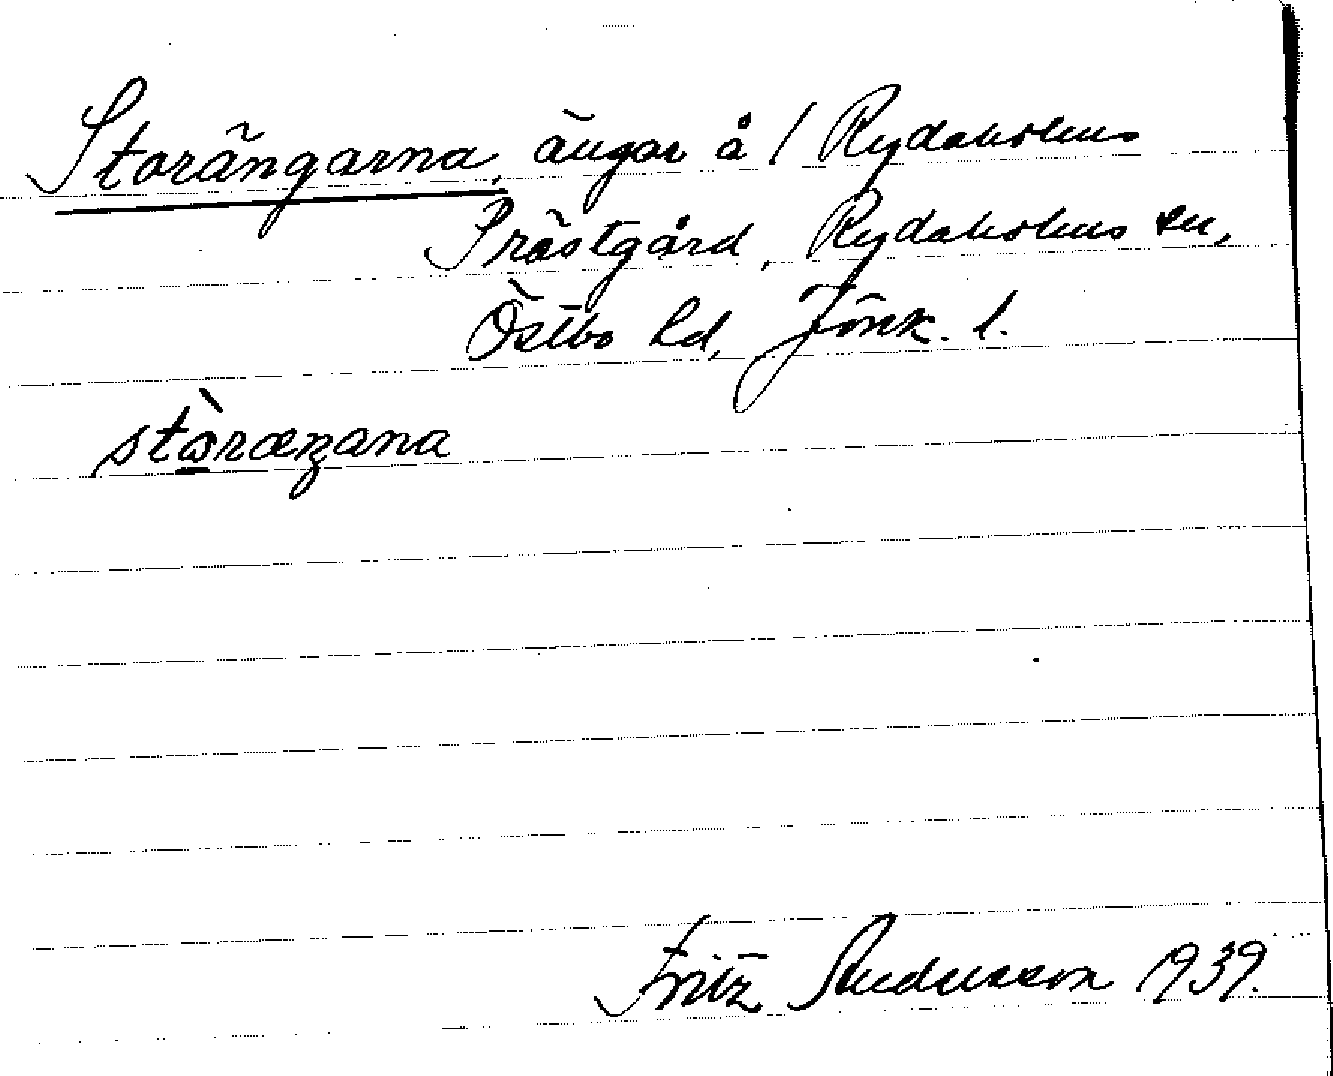 Storängarna, ängar å / Rydaholms
Prästgård, Rydaholms sn,
Östbo hd, Jönk. l.
stòræŋana
Fritz Andersson 1939.